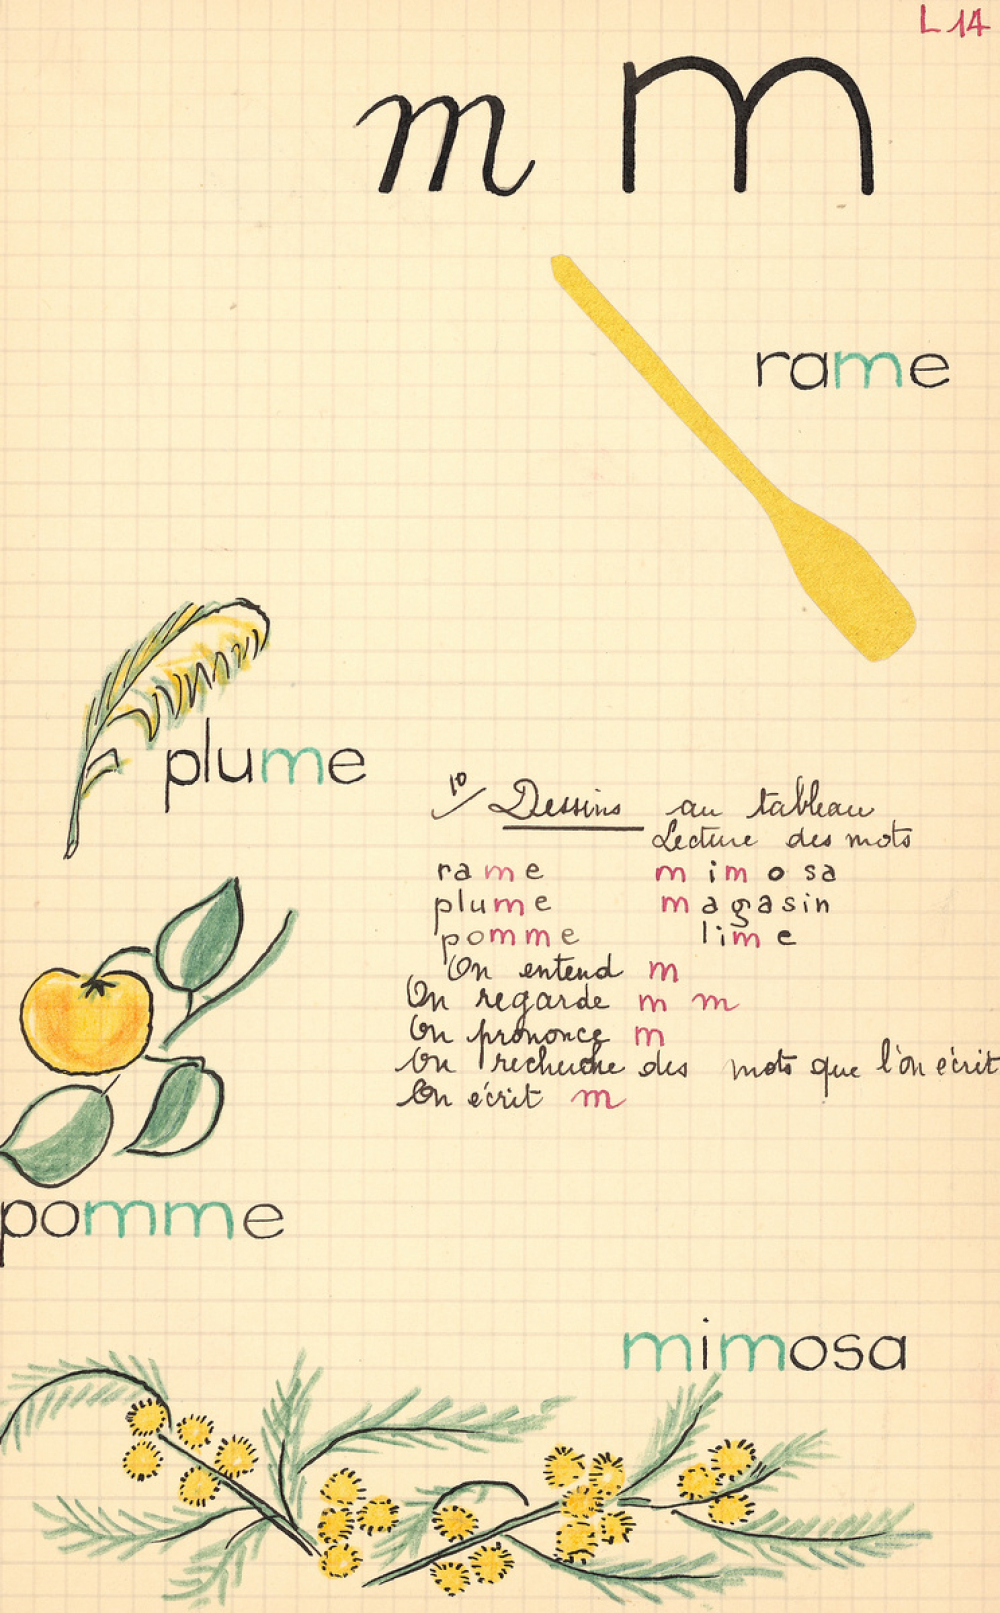 L 14
m m
rame
plume
1º/ Dessins au tableau
Lecture des mots
rame mimosa
plume magasin
pomme lime
On entend m
On regarde m m
On prononce m
On recherche des mots que l'on écrit
On écrit m
pomme
mimosa